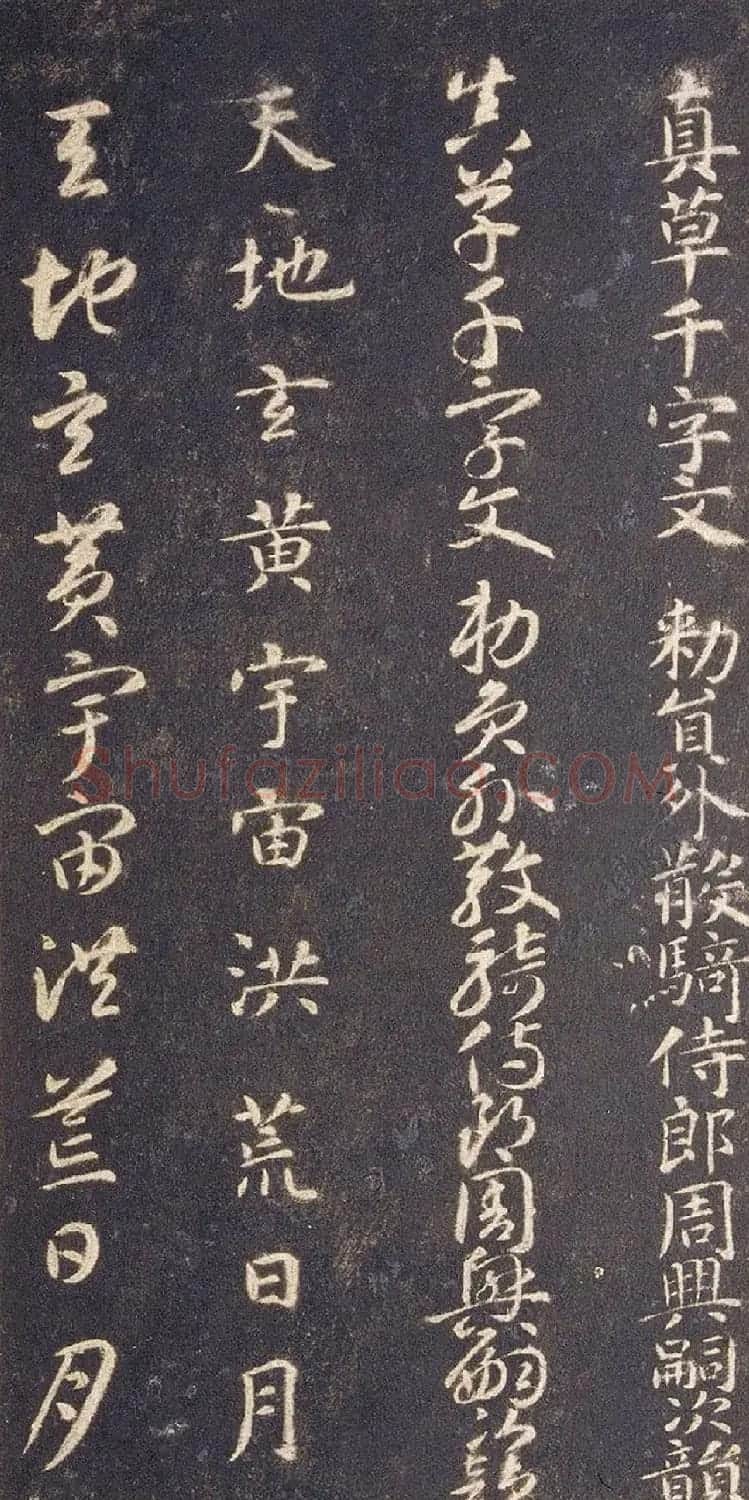 真草千字文勑員外散騎侍郎周興嗣次韻
真草千字文勑員外散騎侍郎周興嗣次韻
天地玄黄宇宙洪荒日月
天地玄黄宇宙洪荒日月
Shufaziliao.COM